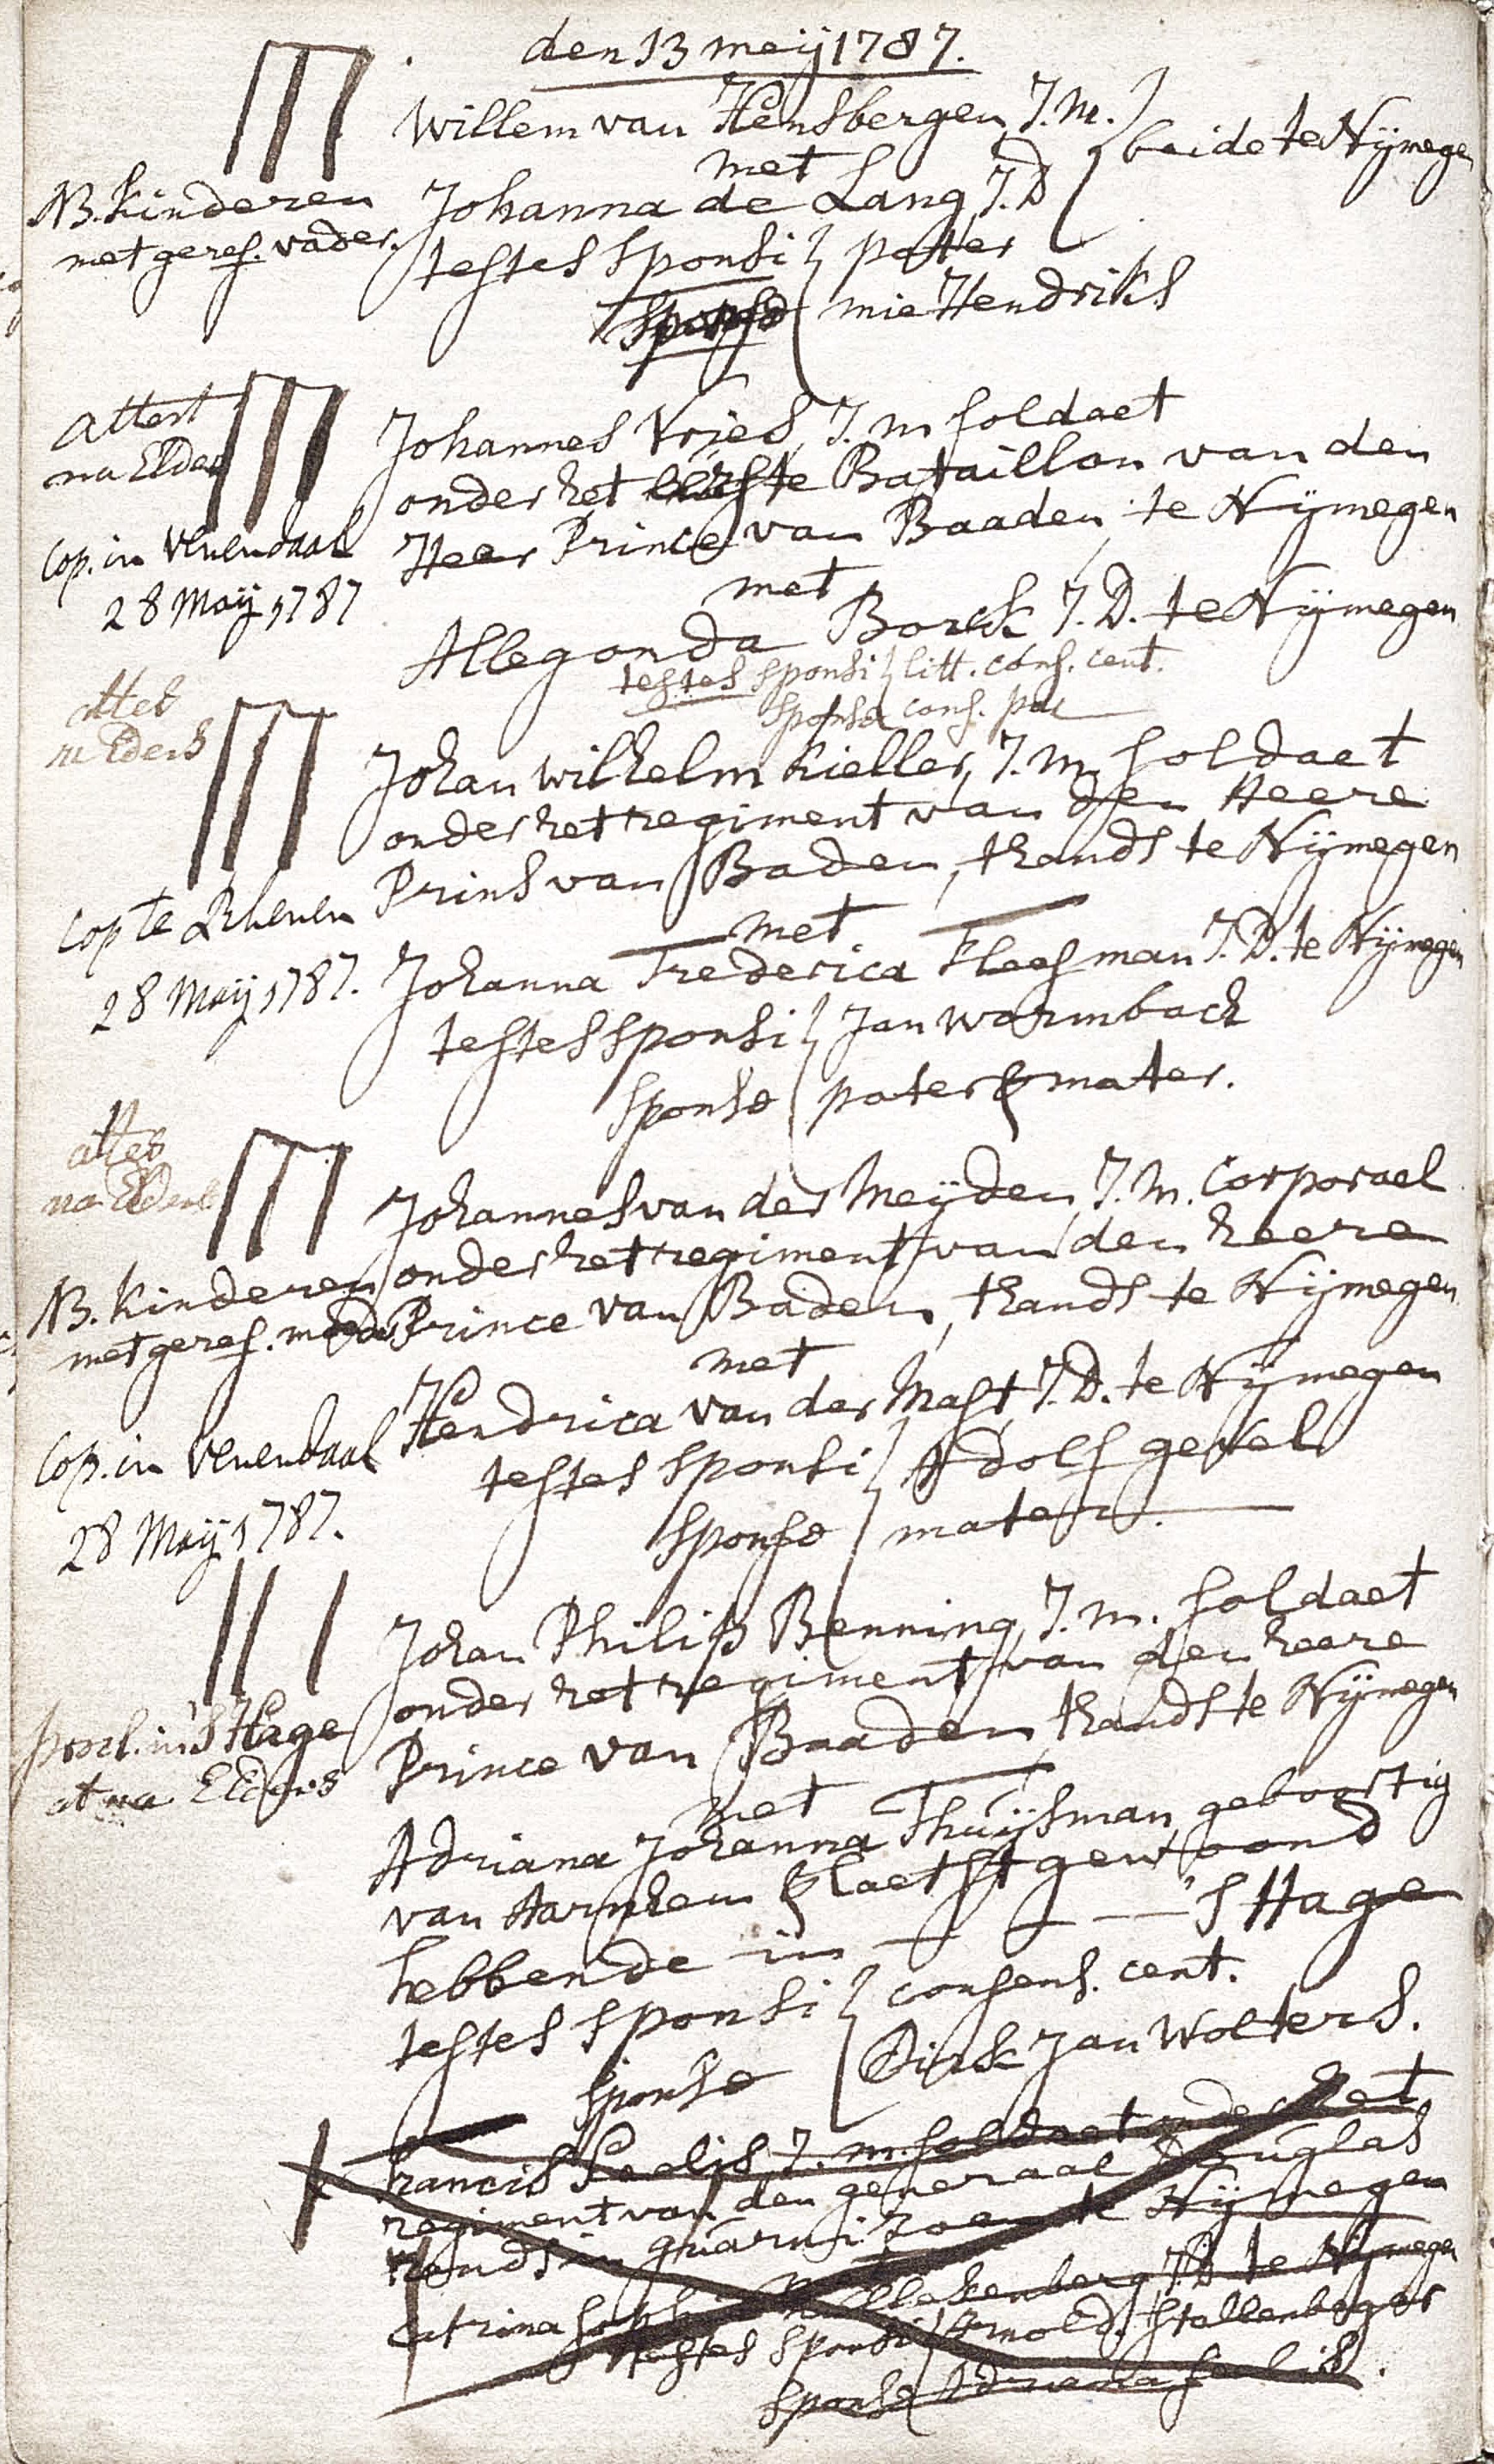 den 13 meij 1787.
Willem van Hensbergen, J.m.
met
beide te Nijmegen
NB. kinderen
met geref. vader.
Johanna de Lang, J.D
testes sponsi pater
sponsæ mie Hendriks
attest
na Elders
Cop. in Venendaal
28 Maij 1787
Johannes Vries, J.m soldaet
onder het eerste Bataillon van den
Heer Prince van Baaden, te Nijmegen
met
Allegonda Borck J.D. te Nijmegen
testes sponsi litt. cons. cent.
sponsæ cons. pat
attes
na Elders
Cop te Rhenen
28 Maij 1787.
Johan wilhelm Kieller, J.m. soldaet
onder het regiment van den Heere
Prins van Baden, thands te Nijmegen
met
Johanna Frederica Fleesman J.D. te Nijmegen
testes sponsi Jan Wormbach
sponsæ pater & mater.
attes
na Elders
NB. kinderen
met geref. moeder
Cop. in Venendaal
28 Maij 1787.
Johannes van der Meijden, J.m. Corporael
onder het regiment van den heere
Prince van Baden, thands te Nijmegen
met
Hendrica van der Mast, J.D. te Nijmegen
testes sponsi Adolf
sponsæ mater
procl. in 's Hage
at na Elders
Johan Philip Benning, J.m. soldaet
onder het regiment van den heere
Prince van Baaden, thands te Nijmegen
met
Adriana Johanna Thuijsman, geboortig
van Aarnhem & laetst gewoond
hebbende in 's Hage
testes sponsi consens. cent.
sponsæ Dirk Jan Wolters.
Francis Seelis, J.m. soldaet onder het
regiment van den generaal Douglas
thands in guarnizoen te Nijmegen
Catrina J.D. te Nijmegen
testes sponsi Arnold.
sponsæ Adriana Seelis.